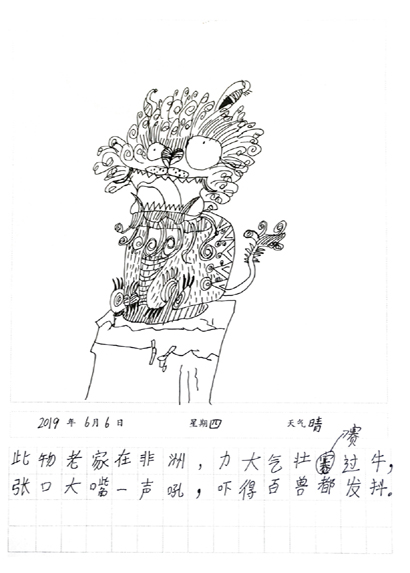 2019 年 6 月 6 日 星期四 天气晴
赛
此物老家在非洲，力大气壮赛过牛，
张口大嘴一声吼，吓得百兽都发抖。